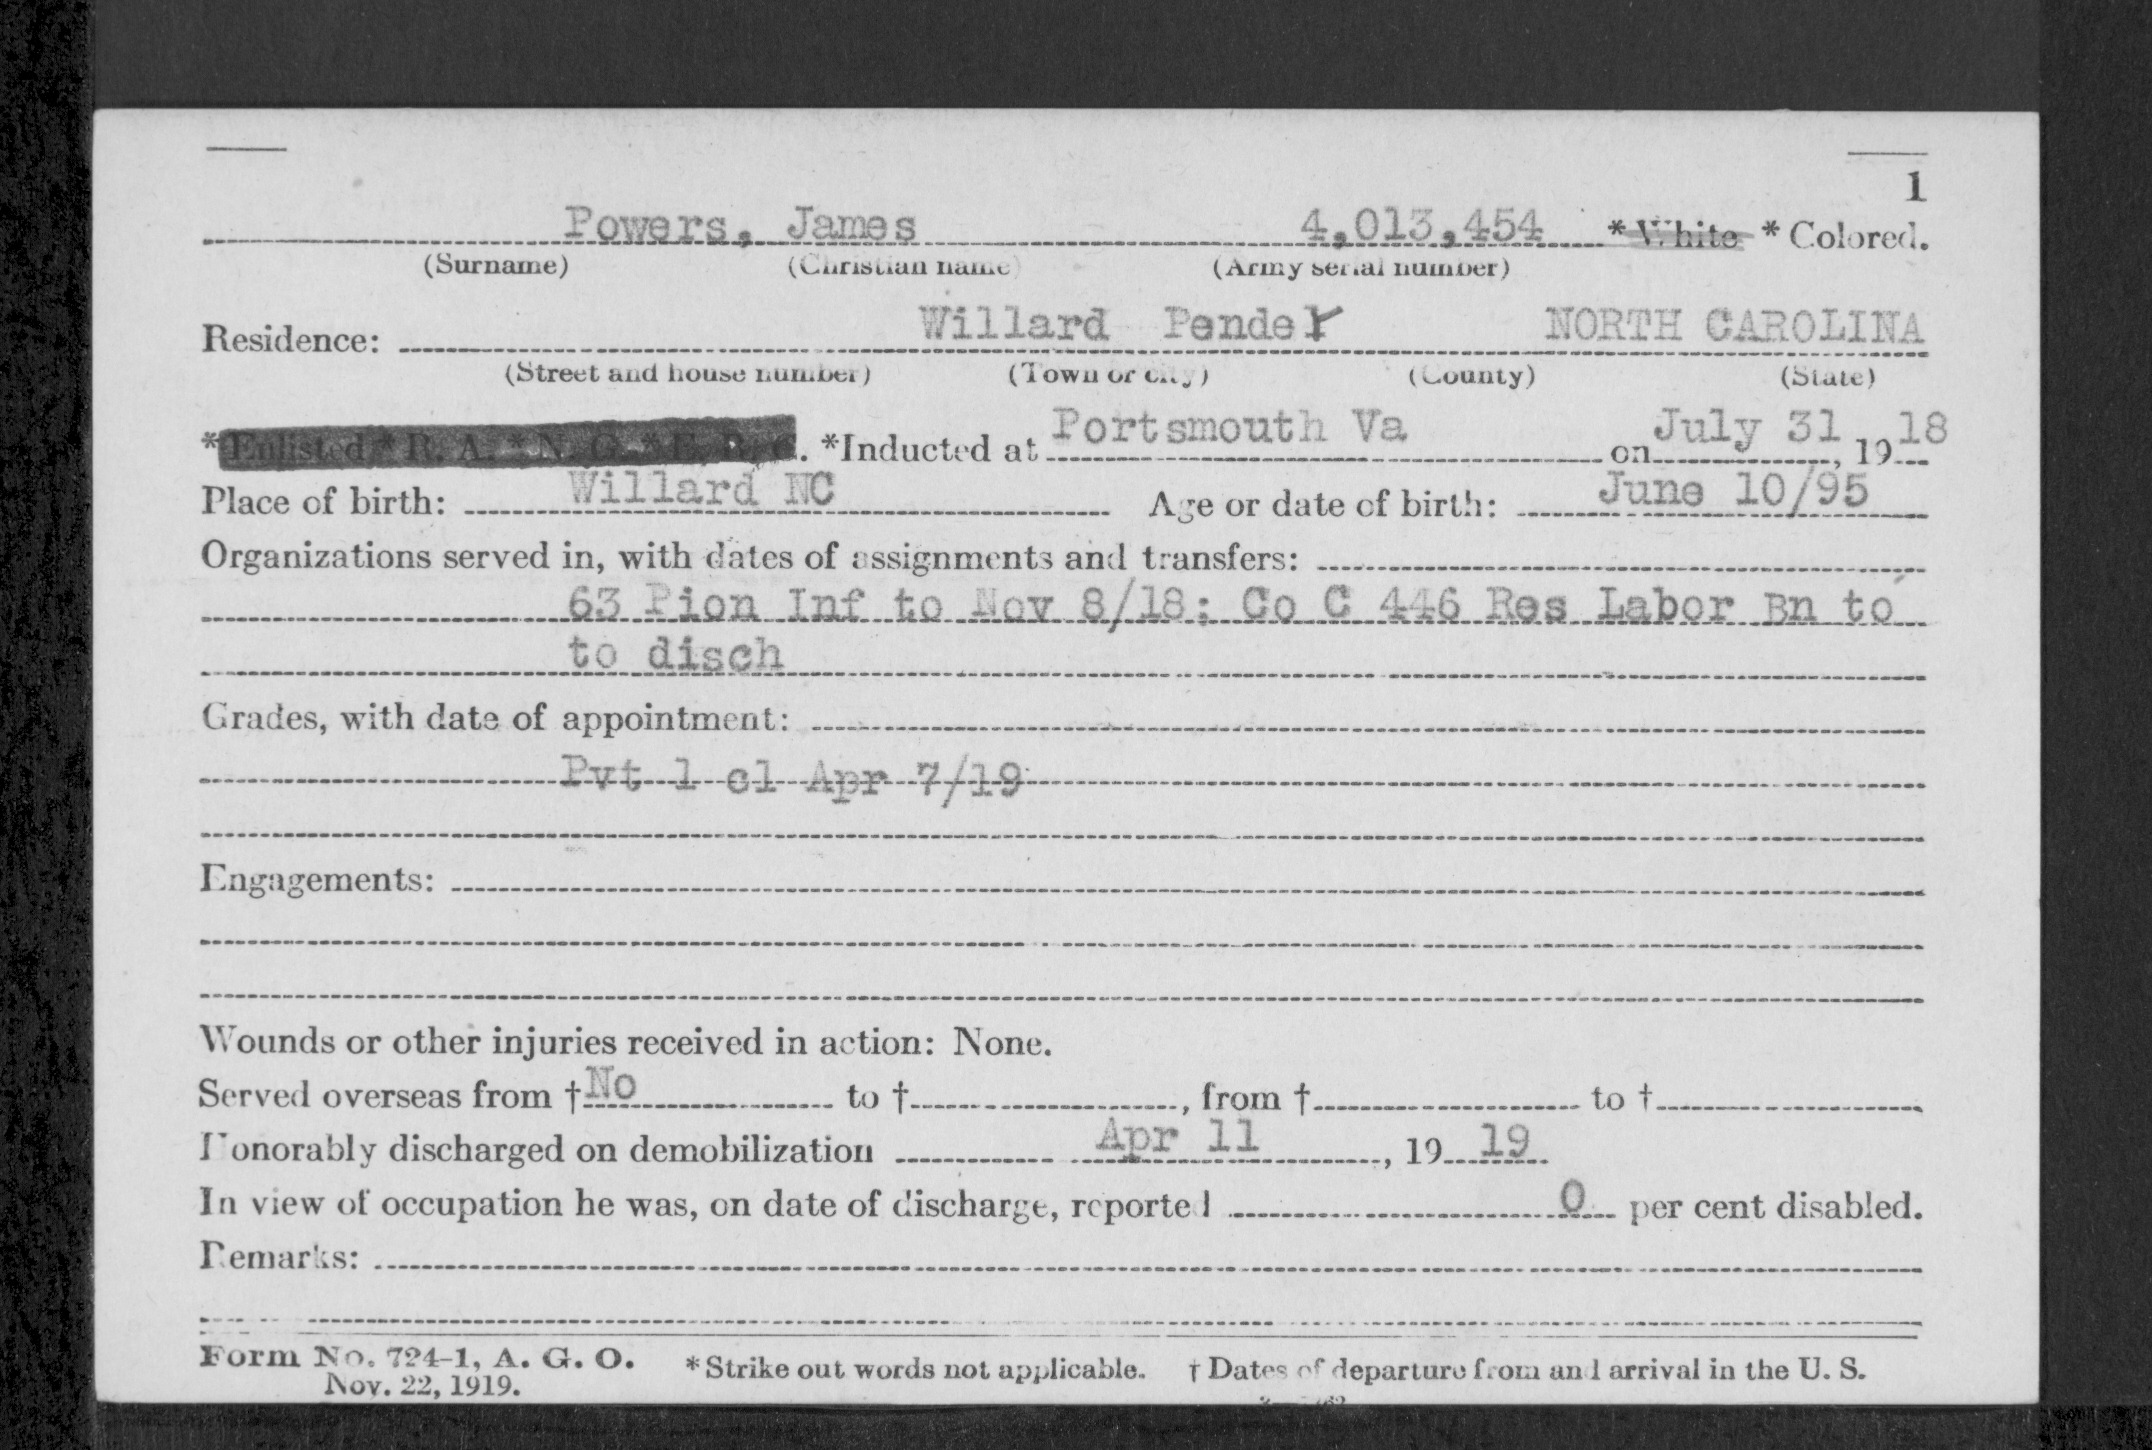 1
Powers, James 4,013,454 * White * Colored.
(Surname) (Christian name) (Army serial number)
Residence: Willard Pender NORTH CAROLINA
(Street and house number) (Town or city) (County) (State)
*Enlisted * R. A. * N. G. * E. R. C. *Inducted at Portsmouth Va on July 31, 1918
Place of birth: Willard NC Age or date of birth: June 10/95
Organizations served in, with dates of assignments and transfers:
63 Pion Inf to Nov 8/18; Co C 446 Res Labor Bn to
to disch
Grades, with date of appointment:
Pvt 1 cl Apr 7/19
Engagements:
Wounds or other injuries received in action: None.
Served overseas from † No to †, from † to †
Honorably discharged on demobilization Apr 11, 1919
In view of occupation he was, on date of discharge, reported 0 per cent disabled.
Remarks:
Form No. 724-1, A. G. O. * Strike out words not applicable. † Dates of departure from and arrival in the U. S.
Nov. 22, 1919.